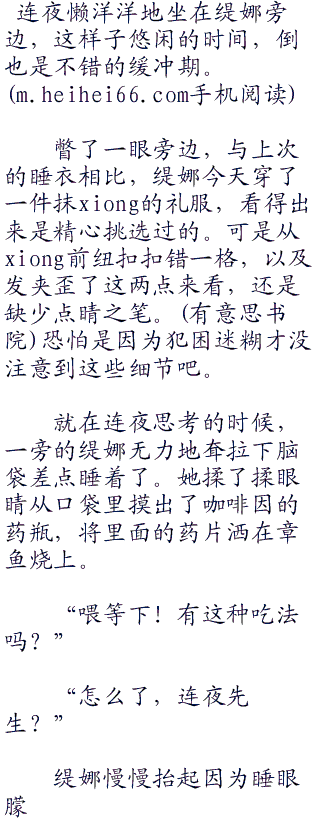 连夜懒洋洋地坐在缇娜旁
边，这样子悠闲的时间，倒
也是不错的缓冲期。
(m.heihei66.com手机阅读)
瞥了一眼旁边，与上次
的睡衣相比，缇娜今天穿了
一件抹xiong的礼服，看得出
来是精心挑选过的。可是从
xiong前纽扣扣错一格，以及
发夹歪了这两点来看，还是
缺少点睛之笔。(有意思书
院)恐怕是因为犯困迷糊才没
注意到这些细节吧。
就在连夜思考的时候，
一旁的缇娜无力地耷拉下脑
袋差点睡着了。她揉了揉眼
睛从口袋里摸出了咖啡因的
药瓶，将里面的药片洒在章
鱼烧上。
“喂等下！有这种吃法
吗？”
“怎么了，连夜先
生？”
缇娜慢慢抬起因为睡眼
朦